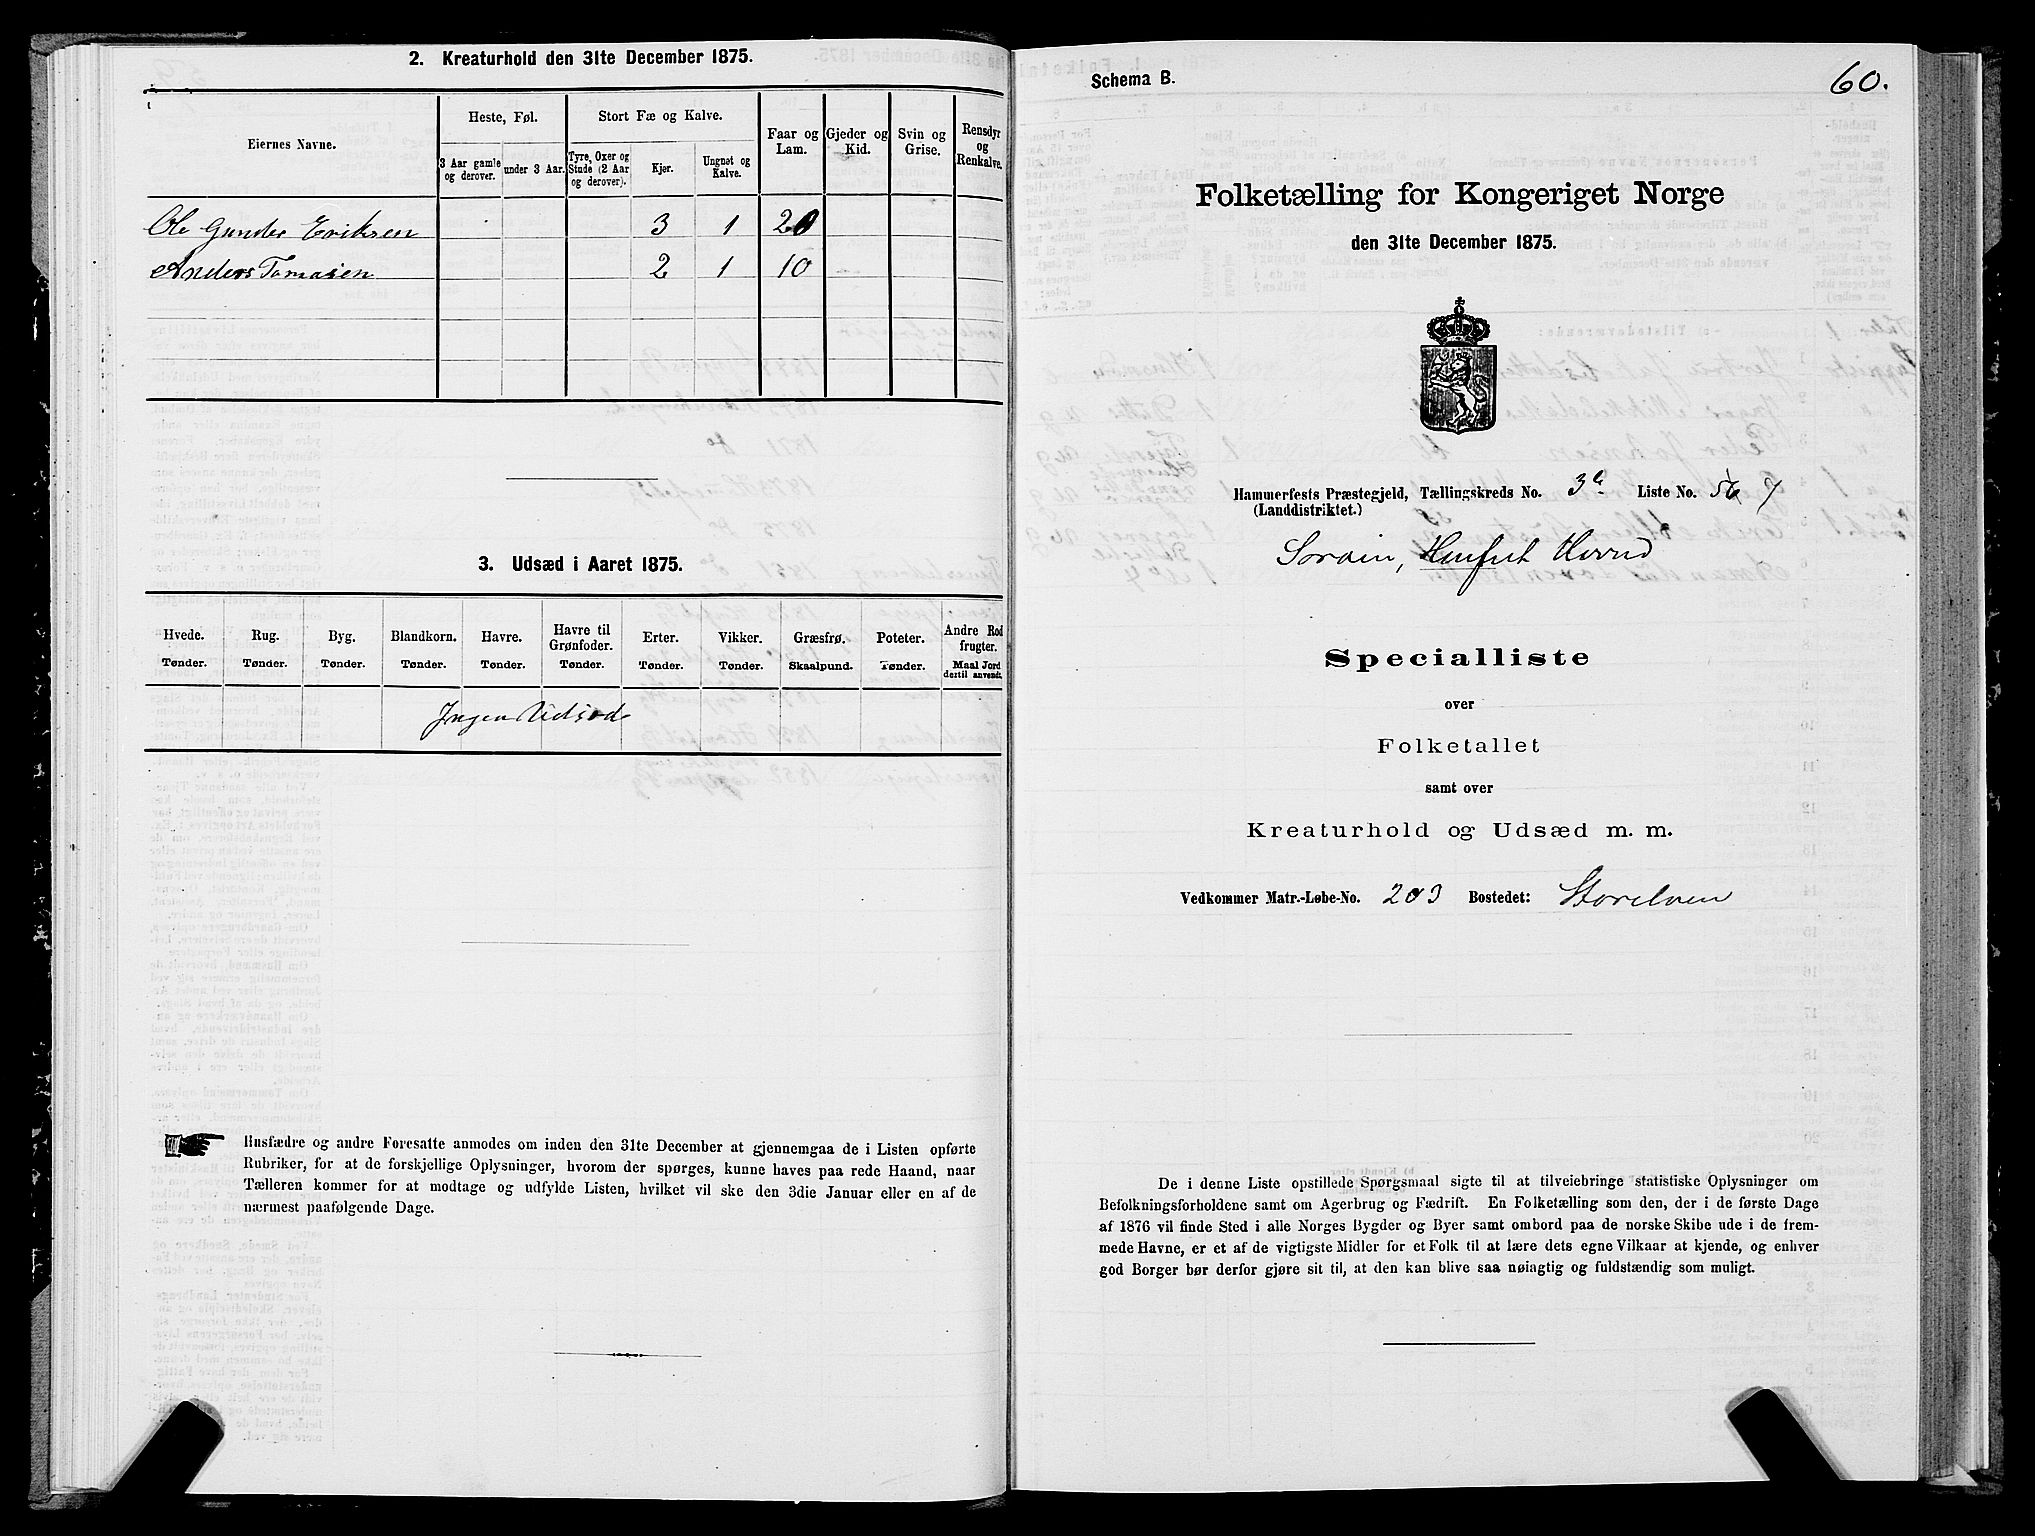 2. Kreaturhold den 31te December 1875.
Eiernes Navne.
Heste, Føl.
3 Aar gamle og derover.
under 3 Aar.
Stort Fæ og Kalve.
Tyre, Oxer og Stude (2 Aar og derover).
Kjør.
Ungnøt og Kalve.
Faar og Lam.
Gjeder og Kid.
Svin og Grise.
Rensdyr og Renkalve.
Ole Gunder Eriksen 3 1 20
Anders Tomasen 2 1 10
3. Udsæd i Aaret 1875.
Hvede. Tønder.
Rug. Tønder.
Byg. Tønder.
Blandkorn. Tønder.
Havre. Tønder.
Havre til Grønfoder. Tønder.
Erter. Tønder.
Vikker. Tønder.
Græsfrø. Skaalpund.
Poteter. Tønder.
Andre Rod frugter. Maal Jord dertil anvendt.
Ingen Udsæd
Husfædre og andre Foresatte anmodes om inden den 31te December at gjennemgaa de i Listen opførte
Rubriker, for at de forskjellige Oplysninger, hvorom der spørges, kunne haves paa rede Haand, naar
Tælleren kommer for at modtage og udfylde Listen, hvilket vil ske den 3die Januar eller en af de
nærmest paafølgende Dage.
Schema B.
60.
Folketælling for Kongeriget Norge
den 31te December 1875.
Hammerfests Præstegjeld, Tællingskreds No. 3 Liste No. 7
(Landdistriktet.)
Specialliste
over
Folketallet
samt over
Kreaturhold og Udsæd m. m.
Vedkommer Matr.-Løbe-No. 203 Bostedet: Storelven
De i denne Liste opstillede Spørgsmaal sigte til at tilveiebringe statistiske Oplysninger om
Befolkningsforholdene samt om Agerbrug og Fædrift. En Folketælling som den, der i de første Dage
af 1876 vil finde Sted i alle Norges Bygder og Byer samt ombord paa de norske Skibe ude i de frem-
mede Havne, er et af de vigtigste Midler for et Folk til at lære dets egne Vilkaar at kjende, og enhver
god Borger bør derfor gjøre sit til, at den kan blive saa nøiagtig og fuldstændig som muligt.